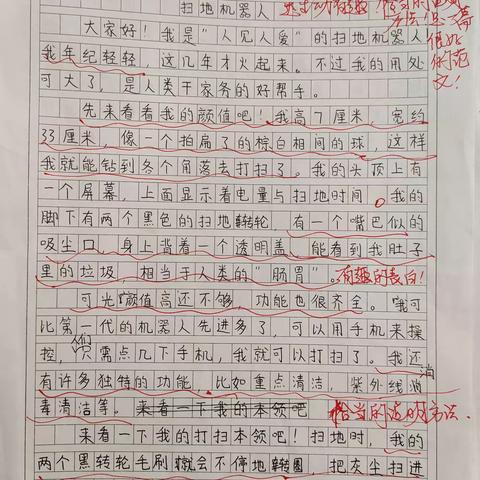 扫地机器人
大家好！我是“人见人爱”的扫地机器人
我年纪轻轻，这几年才火起来。不过我的用处
可大了，是人类干家务的好帮手。
先来看看我的颜值吧！我高7厘米，宽约
33厘米，像一个拍扁了的棕白相间的球，这样
我就能钻到各个角落去打扫了。我的头顶上有
一个屏幕，上面显示着电量与扫地时间。我的
脚下有两个黑色的扫地转轮，有一个嘴巴似的
吸尘口，身上背着一个透明盖，能看到我肚子
里的垃圾，相当于人类的“肠胃”。有趣的表白！
可光颜值高还不够，功能也很齐全。我可
比第一代的机器人先进多了，可以用手机来操
控，人们只需点几下手机，我就可以打扫了。我还
有许多独特的功能，比如重点清洁，紫外线消
毒清洁等。来看一下我的本领吧 恰当的说明方法.
来看一下我的打扫本领吧！扫地时，我的
两个黑转轮毛刷就会不停地转圈，把灰尘扫进